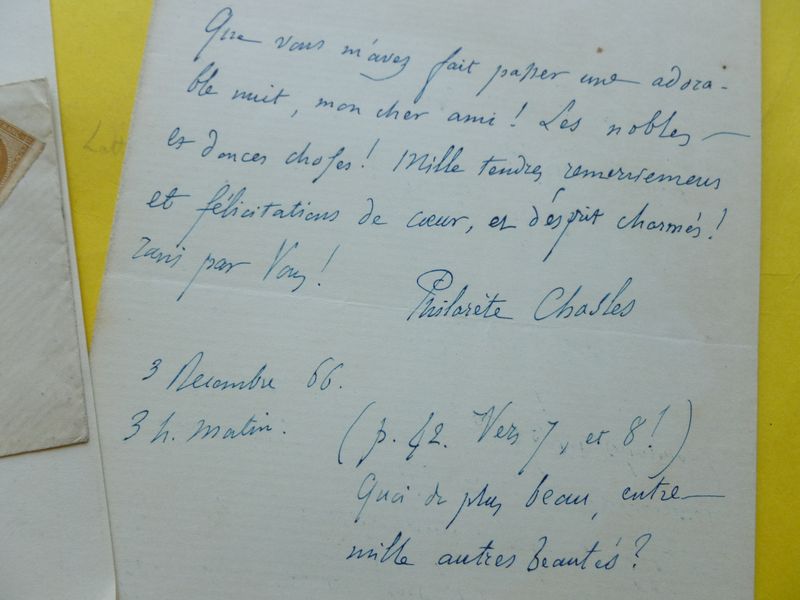 Que vous m'avez fait passer une adora-
ble nuit, mon cher ami! Les nobles
et douces choses! Mille tendres remerciemens
et félicitations de cœur, et d'esprit charmés!
ravis par Vous!
Philarète Chasles
3 Décembre 66.
3 h. matin.
(p. 42. Vers 7, et 8!)
Quoi de plus beau, entre
mille autres Beautés?